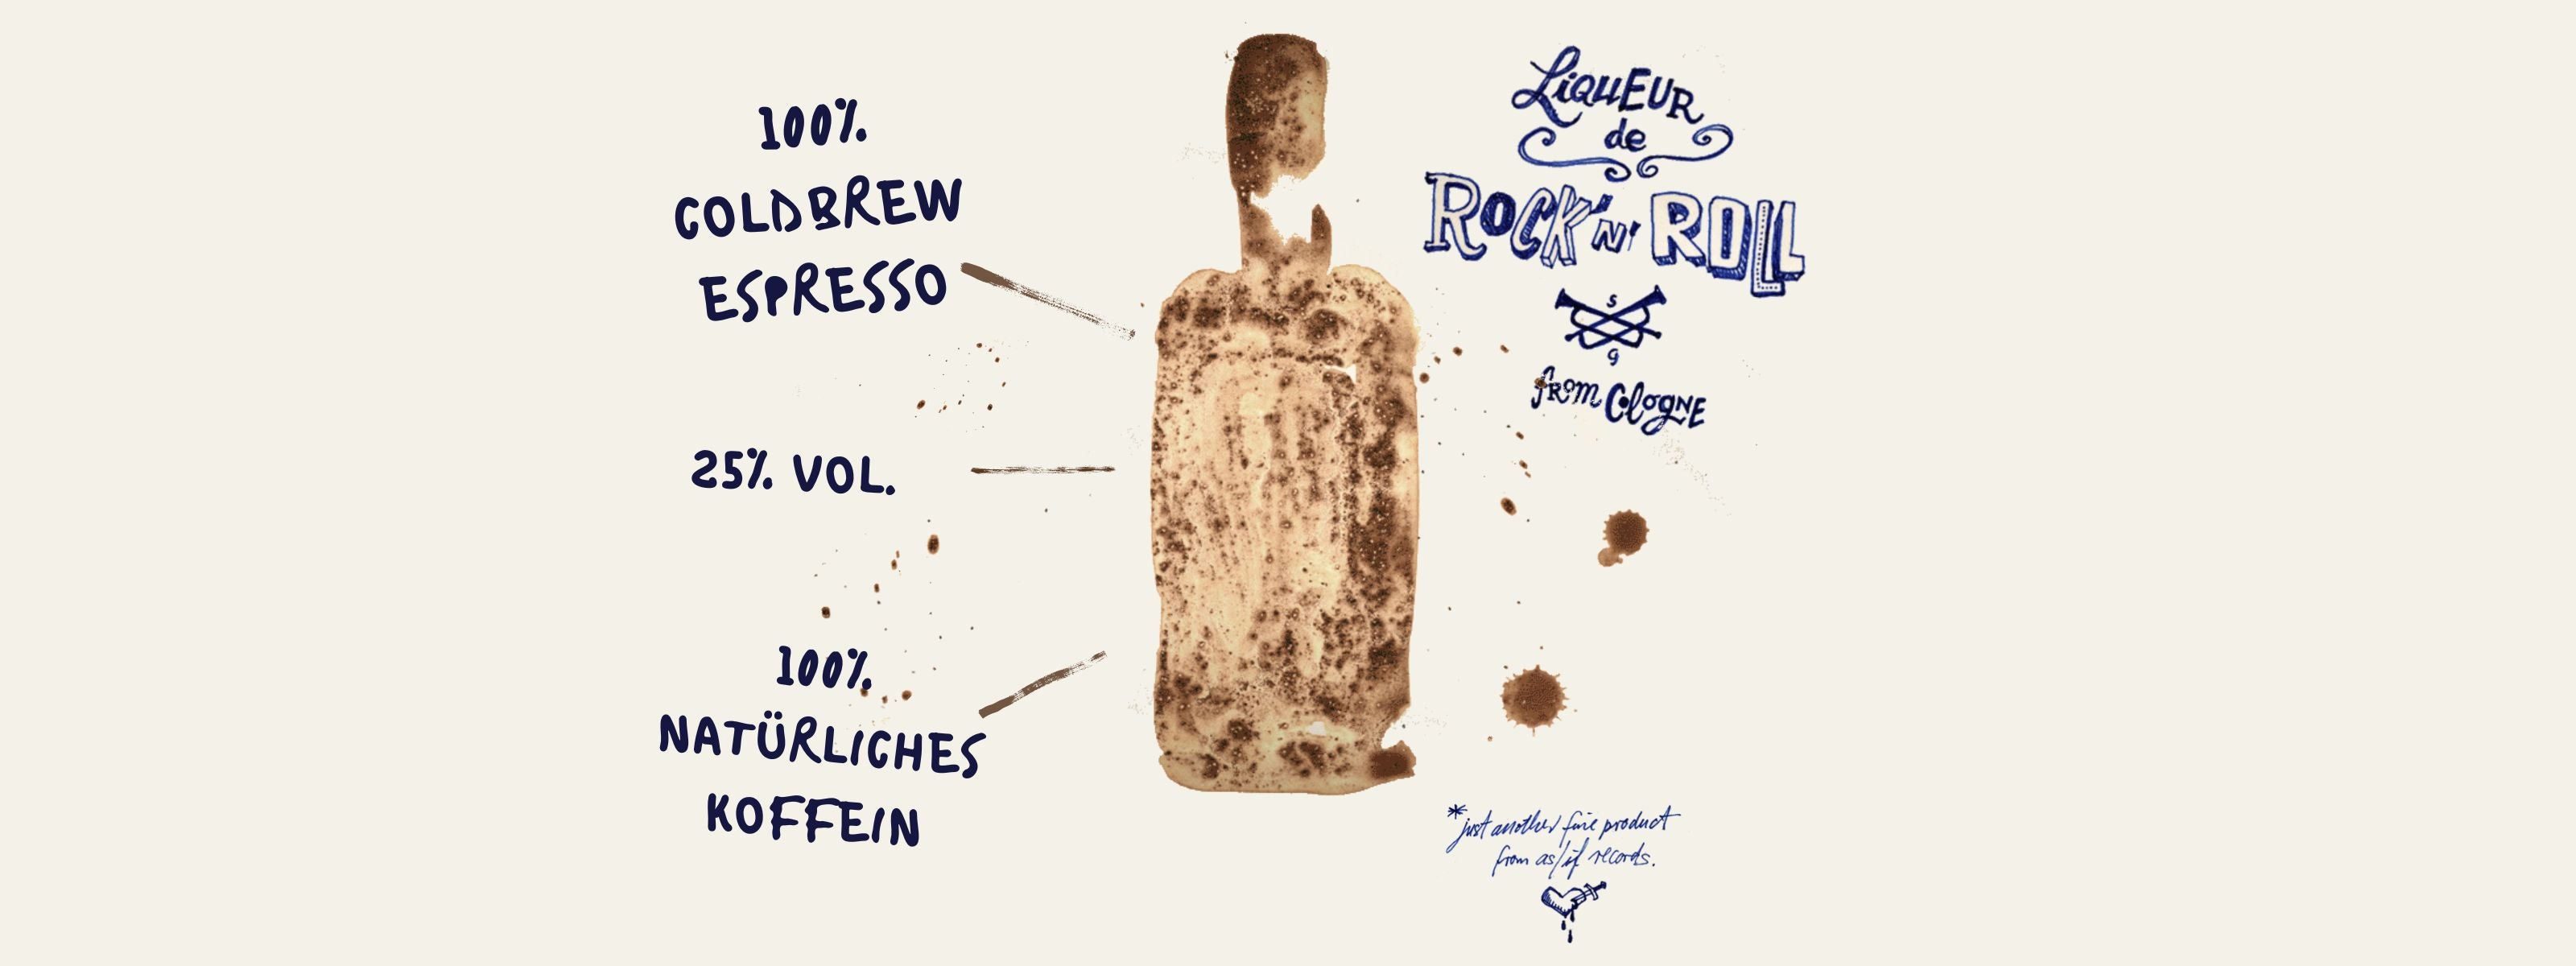 100%
COLDBREW
ESPRESSO
25% VOL.
100%
NATÜRLICHES
KOFFEIN
LiQUEUR
de
ROCK'N' ROLL
S
G
from Cologne
*just another fine product
from as/if records.